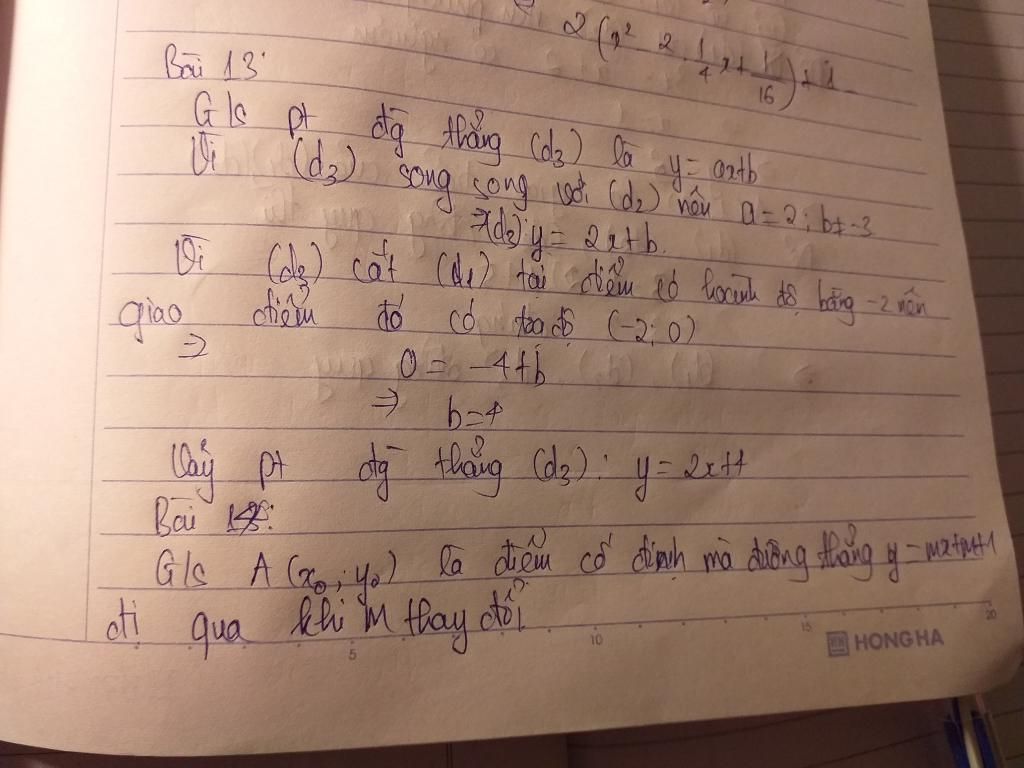 2(x² 2.1/4 x+ 1/16)+1
Bài 13:
G/s pt đg thẳng (d₃) là y=ax+b
Vì (d₃) song song với (d₂) nên a=2; b≠-3
⇒(d₃): y= 2x+b.
Vì (d₃) cắt (d₁) tại điểm có hoành độ bằng -2 nên
giao điểm đó có tọa độ (-2; 0)
⇒ 0 = -4+b
⇒ b=4
Vậy pt đg thẳng (d₃): y=2x+4
Bài
G/s A(x₀; y₀) là điểm cố định mà đường thẳng y=mx+m+1
đi qua khi m thay đổi
5 10 15 20
HONG HA